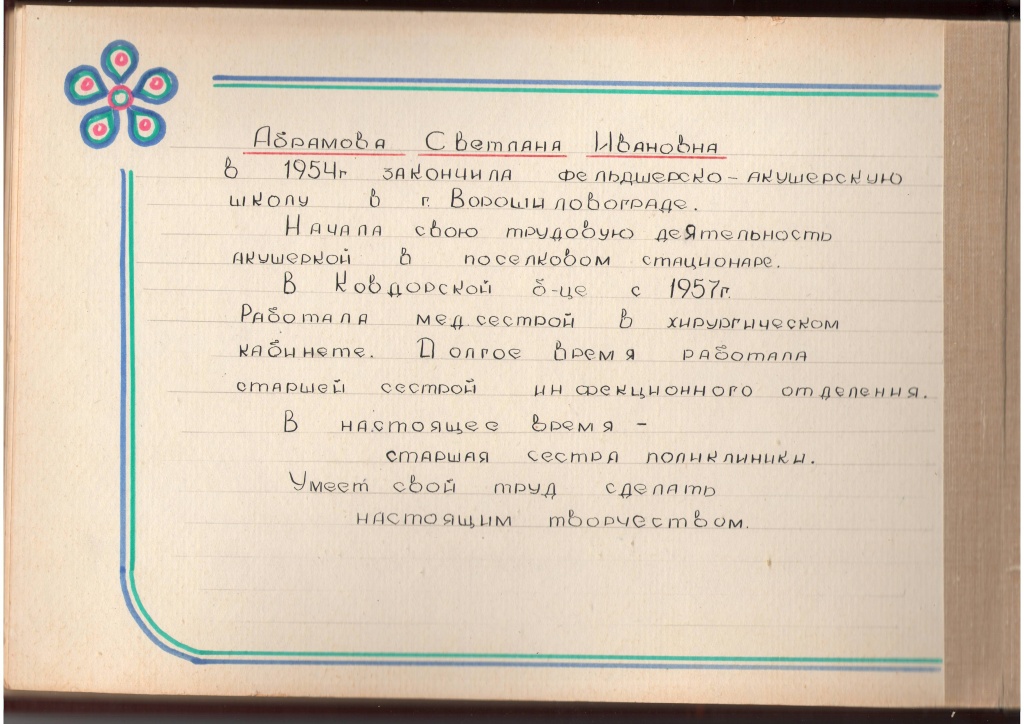 Абрамова Светлана Ивановна
в 1954г закончила фельдшерско-акушерскую
школу в г. Ворошиловограде.
Начала свою трудовую деятельность
акушеркой в поселковом стационаре.
В Ковдорской б-це с 1957г.
Работала мед.сестрой в хирургическом
кабинете. Долгое время работала
старшей сестрой инфекционного отделения.
В настоящее время -
старшая сестра поликлиники.
Умеет свой труд сделать
настоящим творчеством.